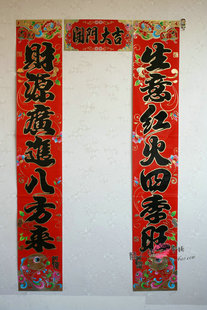 吉大門開
生意紅火四季旺
財源廣進八方來